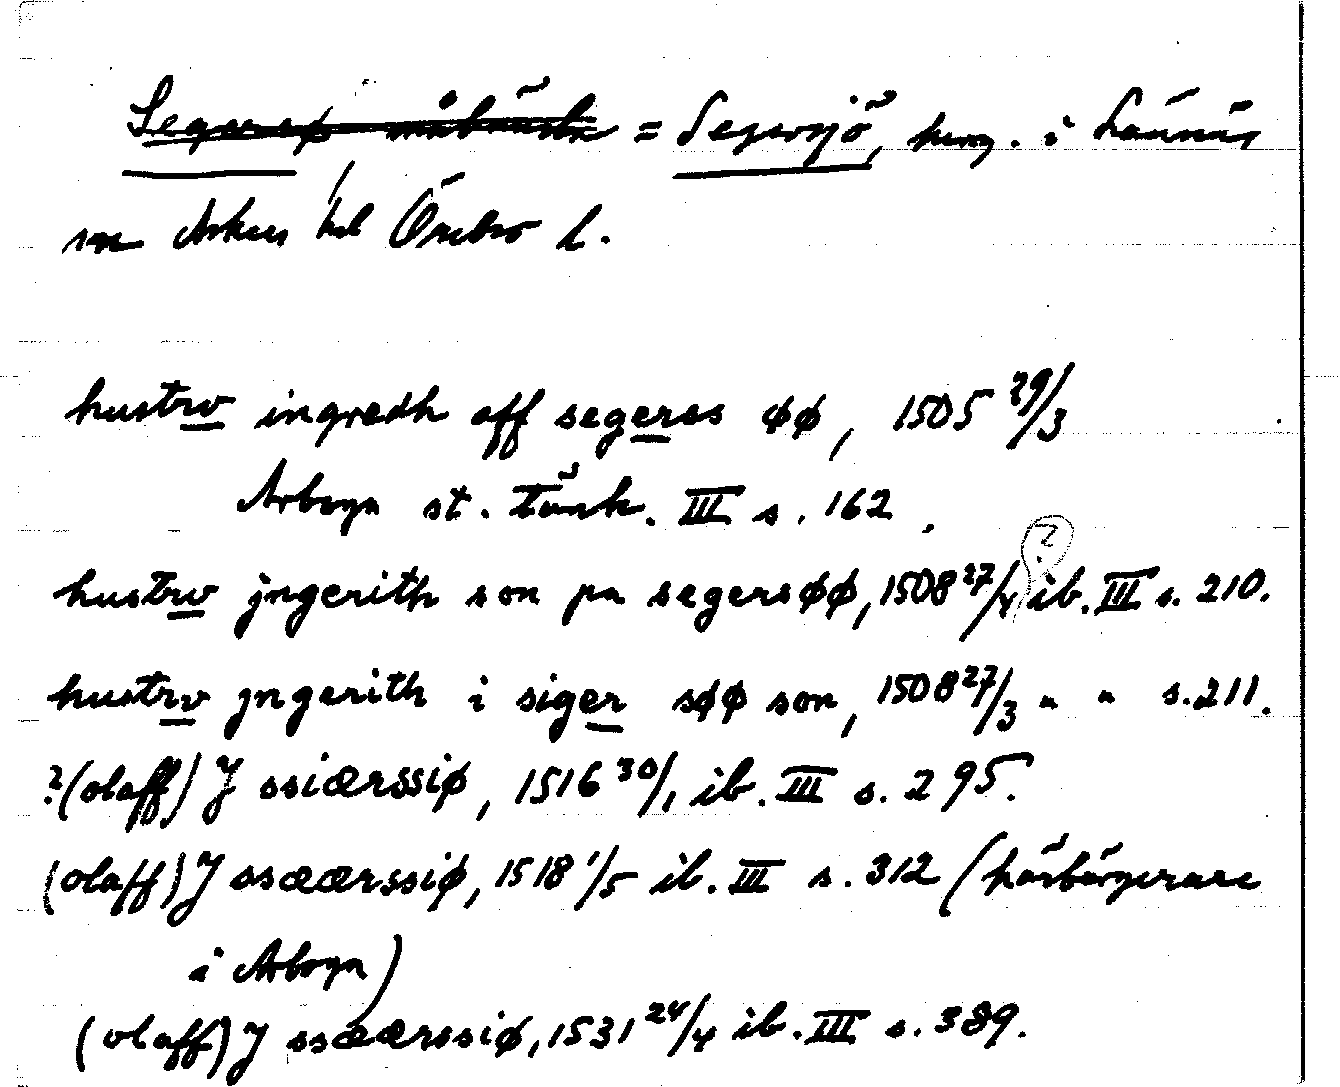 = Segersjö, herrg. i Lännäs
sn Askers hd Örebro l.
hustrv ingredh aff segerss øø, 1505 29/3
Arboga st. tänk. III s. 162.
hustrv jngerith son pa segersøø, 1508 27/4 ? ib. III s. 210.
hustrv jngerith i siger søø son, 1508 27/3 " " s. 211.
?(olaff) J ssiærssiø, 1516 30/1 ib. III s. 295.
(olaff) J ssæærssiø, 1518 1/5 ib. III s. 312 (härbärgerare
i Arboga)
(olaff) J ssæærssiø, 1531 24/4 ib. III s. 389.